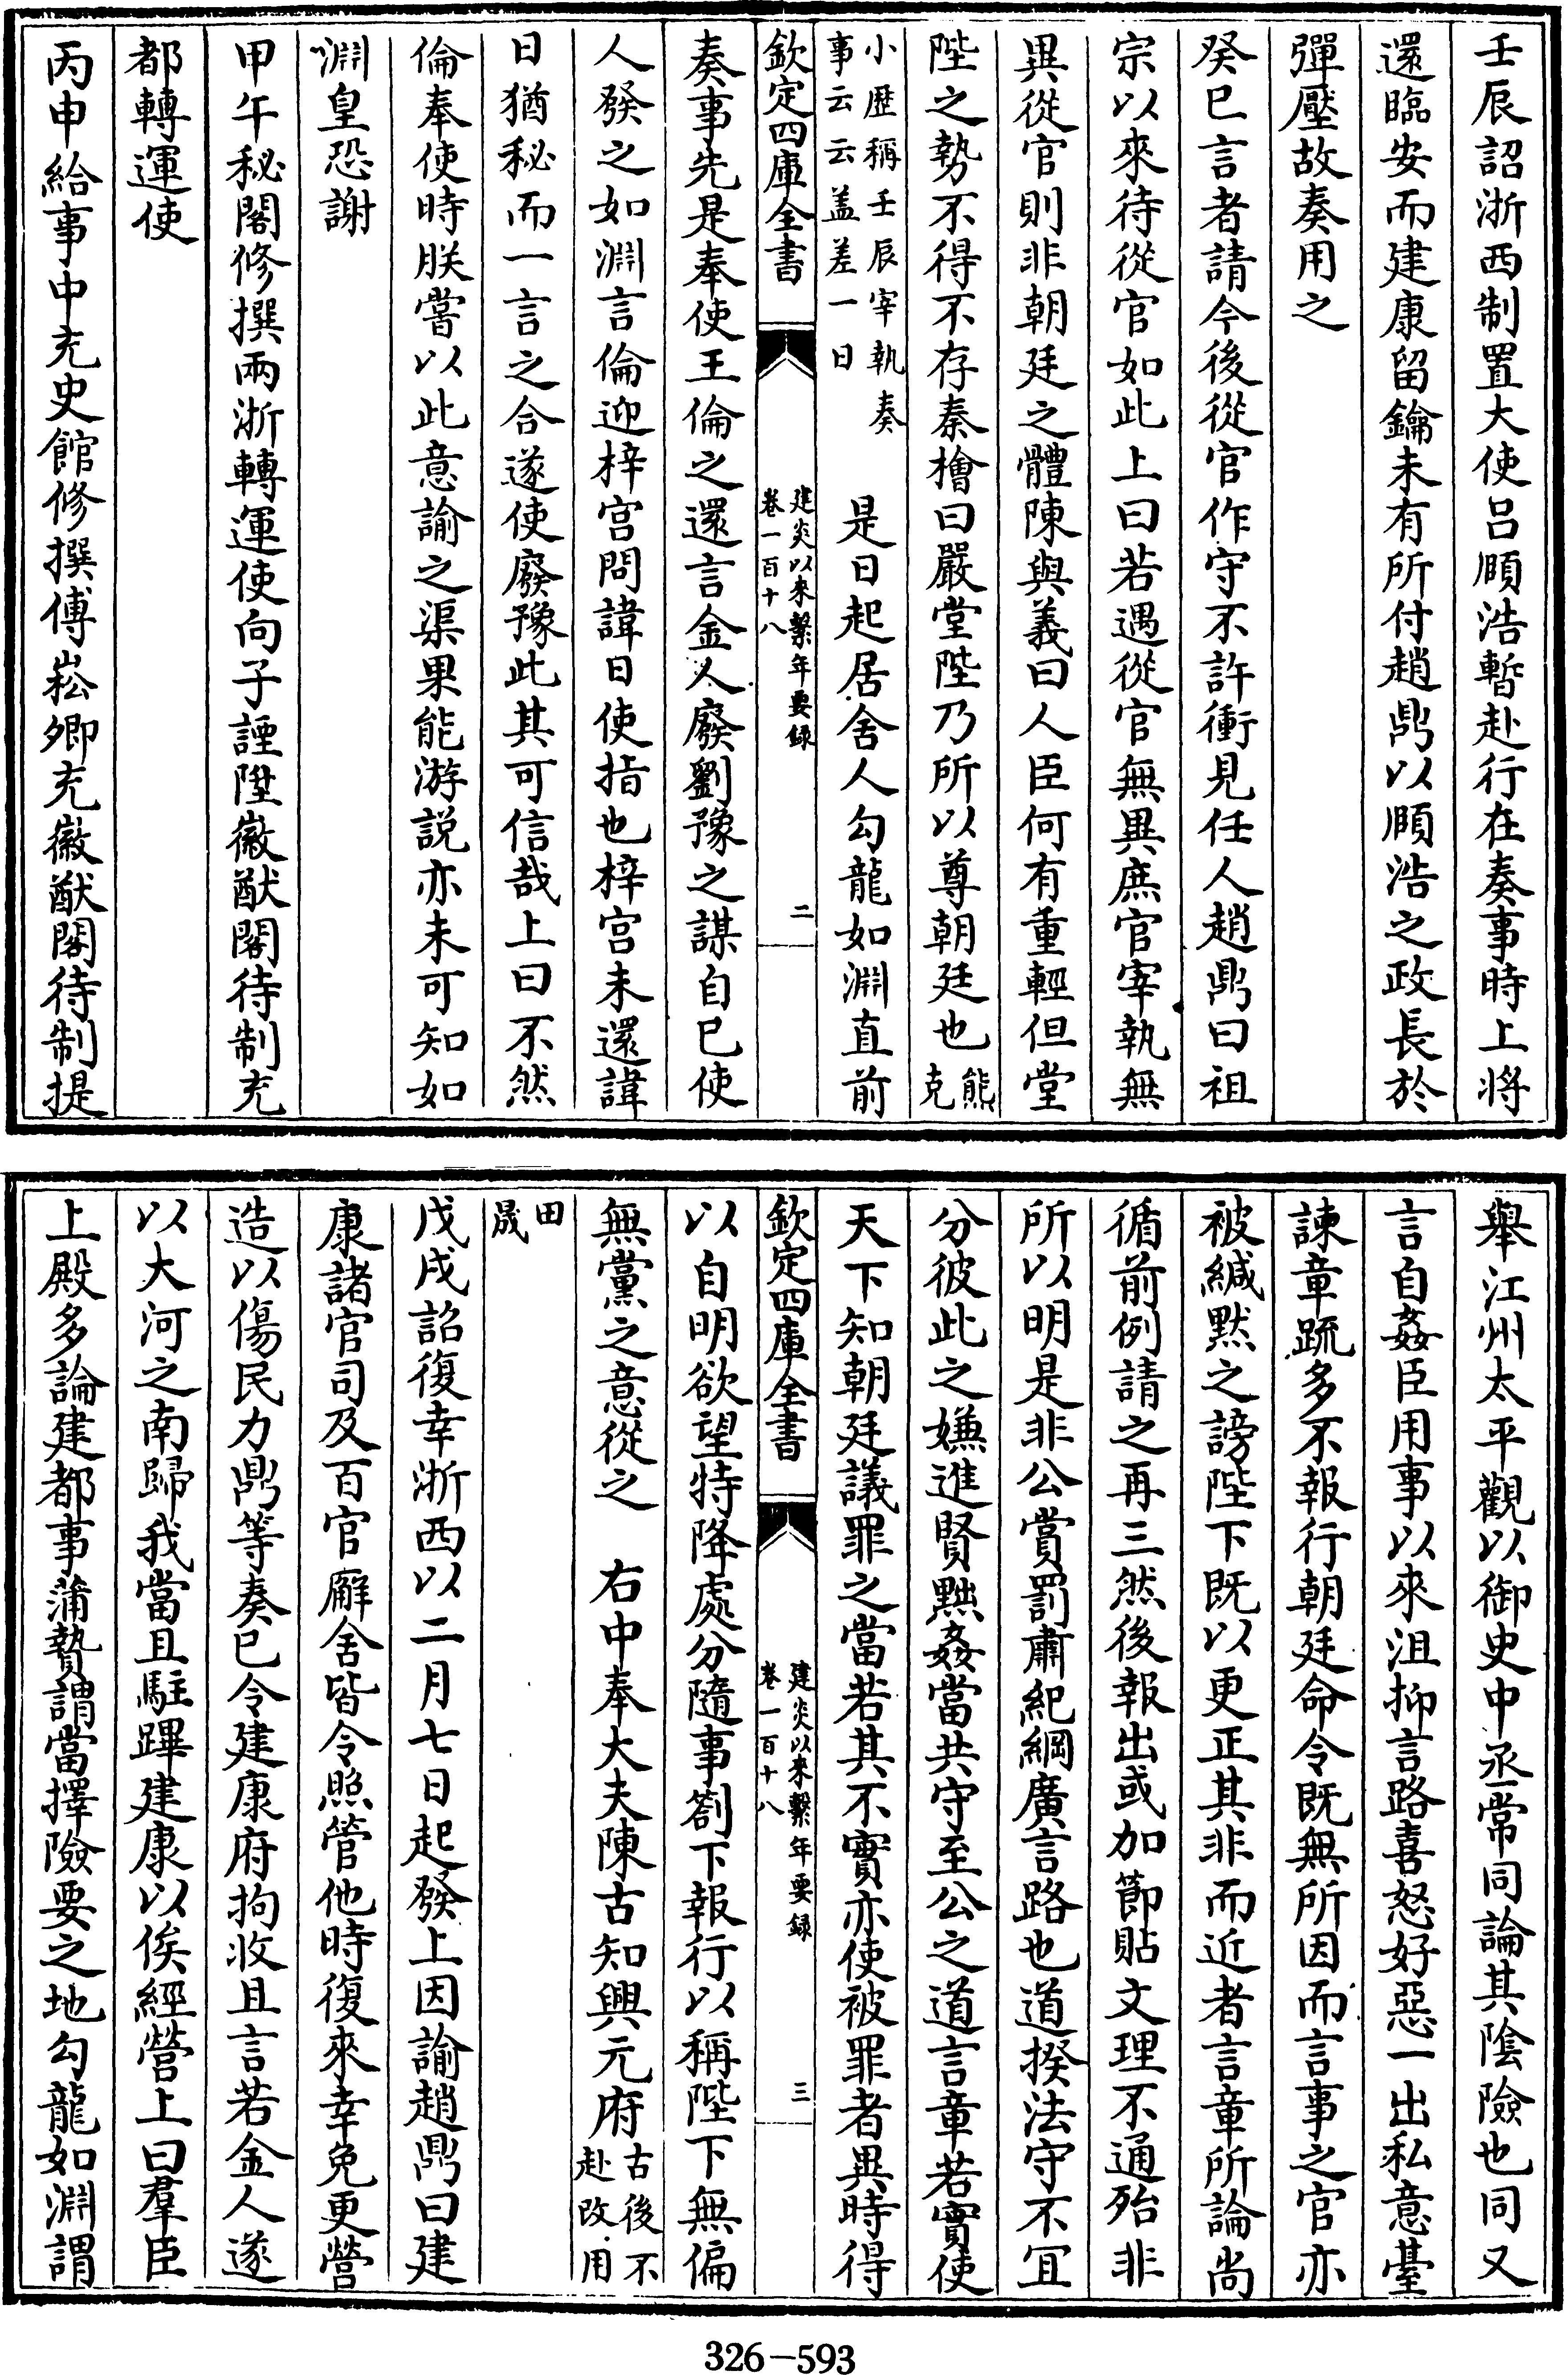 壬辰詔浙西制置大使吕頤浩暫赴行在奏事時上將
還臨安而建康留鑰未有所付趙鼎以頤浩之政長於
彈壓故奏用之
癸巳言者請今後從官作守不許衝見任人趙鼎曰祖
宗以來待從官如此上曰若遇從官無異庶官宰執無
異從官則非朝廷之體陳與義曰人臣何有重輕但堂
陛之勢不得不存秦檜曰嚴堂陛乃所以尊朝廷也熊克
小歴稱壬辰宰執奏事云云盖差一日 是日起居舍人勾龍如淵直前
欽定四庫全書 建炎以來繫年要録 卷一百十八 二
奏事先是奉使王倫之還言金人廢劉豫之謀自已使
人發之如淵言倫迎梓宫問諱日使指也梓宫未還諱
日猶秘而一言之合遂使廢豫此其可信哉上曰不然
倫奉使時朕嘗以此意諭之渠果能游説亦未可知如
淵皇恐謝
甲午秘閣修撰兩浙轉運使向子諲陞徽猷閣待制充
都轉運使
丙申給事中充史館修撰傅崧卿充徽猷閣待制提
舉江州太平觀以御史中丞常同論其陰險也同又
言自姦臣用事以來沮抑言路喜怒好惡一出私意臺
諫章疏多不報行朝廷命令既無所因而言事之官亦
被緘黙之謗陛下既以更正其非而近者言章所論尚
循前例請之再三然後報出或加節貼文理不通殆非
所以明是非公賞罰肅紀綱廣言路也道揆法守不宜
分彼此之嫌進賢黜姦當共守至公之道言章若實使
天下知朝廷議罪之當若其不實亦使被罪者異時得
欽定四庫全書 建炎以來繫年要録 卷一百十八 三
以自明欲望特降處分隨事劄下報行以稱陛下無偏
無黨之意從之 右中奉大夫陳古知興元府古後不赴改用
田晟
戊戌詔復幸浙西以二月七日起發上因諭趙鼎曰建
康諸官司及百官廨舍皆令照管他時復來幸免更營
造以傷民力鼎等奏已令建康府拘收且言若金人遂
以大河之南歸我當且駐蹕建康以俟經營上曰羣臣
上殿多論建都事蒲贄謂當擇險要之地勾龍如淵謂
326-593